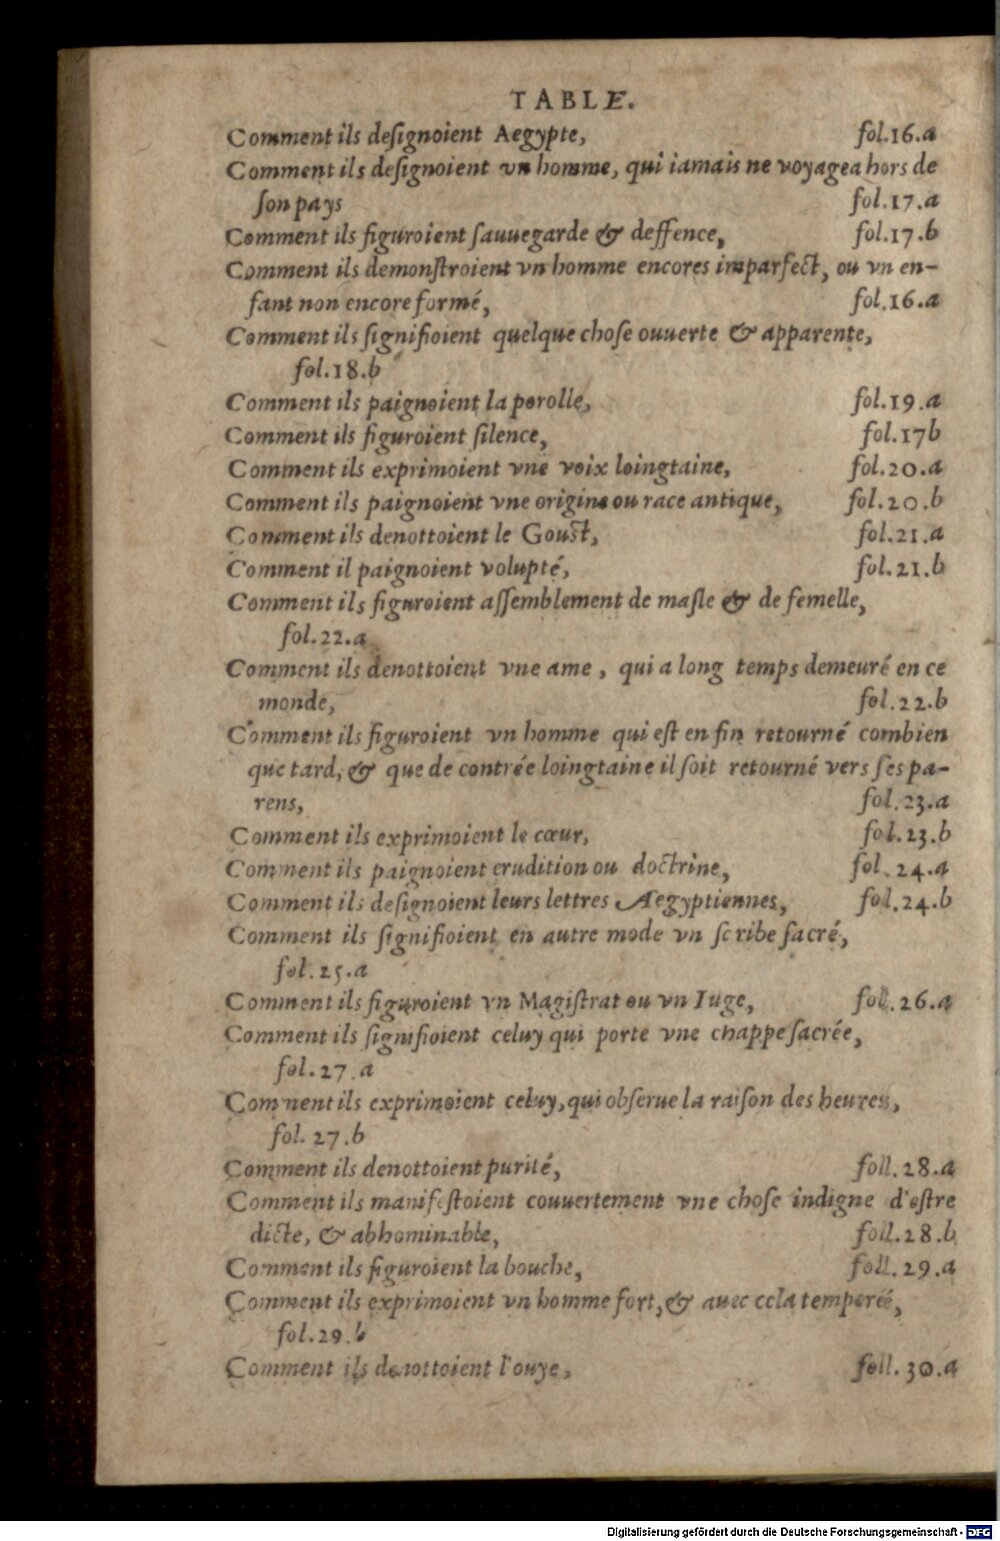 TABLE.
Comment ils deſignoient Aegypte, fol.16.a
Comment ils deſignoient vn homme, qui iamais ne voyagea hors de
ſon pays fol.17.a
Comment ils figuroient ſauuegarde & deffence, fol.17.b
Comment ils demonſtroient vn homme encores imparfect, ou vn en-
fant non encore formé, fol.16.a
Comment ils ſignifioient quelque choſe ouuerte & apparente,
fol.18.b
Comment ils paignoient la parolle, fol.19.a
Comment ils figuroient ſilence, fol.17b
Comment ils exprimoient vne voix loingtaine, fol.20.a
Comment ils paignoient vne origine ou race antique, fol.20.b
Comment ils denottoient le Gouſt, fol.21.a
Comment il paignoient volupté, fol.21.b
Comment ils figuroient aſſemblement de maſle & de femelle,
fol.22.a
Comment ils denottoient vne ame, qui a long temps demeuré en ce
monde, fol.22.b
Comment ils figuroient vn homme qui eſt en fin retourné combien
que tard, & que de contrée loingtaine il ſoit retourné vers ſes pa-
rens, fol.23.a
Comment ils exprimoient le cœur, fol.23.b
Comment ils paignoient erudition ou doctrine, fol.24.a
Comment ils deſignoient leurs lettres Aegyptiennes, fol.24.b
Comment ils ſignifioient en autre mode vn ſcribe ſacré,
fol.25.a
Comment ils figuroient vn Magiſtrat ou vn Iuge, fol.26.a
Comment ils ſignifioient celuy qui porte vne chappe ſacrée,
fol.27.a
Comment ils exprimoient celuy, qui obſerue la raiſon des heures,
fol.27.b
Comment ils denottoient purité, foll.28.a
Comment ils manifeſtoient couuertement vne choſe indigne d'eſtre
dicte, & abhominable, foll.28.b
Comment ils figuroient la bouche, foll.29.a
Comment ils exprimoient vn homme fort, & auec cela temperée,
fol.29.b
Comment ils denottoient l'ouye, foll.30.a
Digitalisierung gefördert durch die Deutsche Forschungsgemeinschaft - DFG